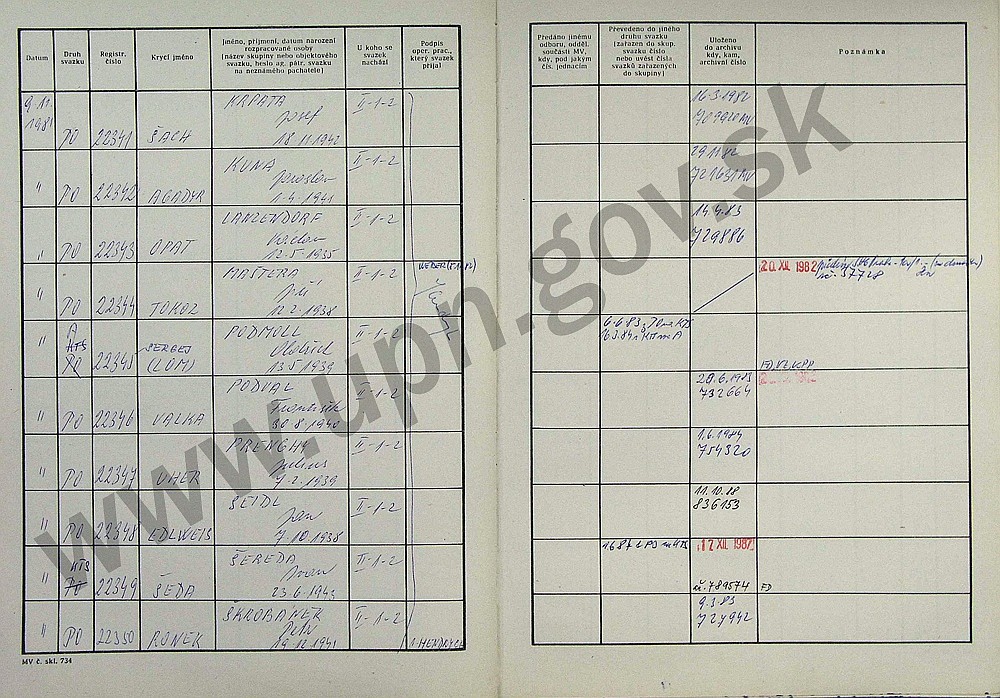 Datum
Druh svazku
Registr. číslo
Krycí jméno
Jméno, příjmení, datum narození
rozpracované osoby
(název skupiny nebo objektového
svazku, heslo ag. pátr. svazku
na neznámého pachatele)
U koho se svazek nachází
Podpis oper. prac., který svazek přijal
Předáno jinému
odboru, odděl.
součásti MV,
kdy, pod jakým
čís. jednacím
Převedeno do jiného
druhu svazku
(zařazen do skup.
svazku číslo
nebo uvést čísla
svazků zařazených
do skupiny)
Uloženo
do archivu
kdy, kam,
archivní číslo
Poznámka
9.11. 1981 PO 22341 ŠACH KRPATA Josef 18.11.1942 II-1-2
16.3.1982
709920 MV
" PO 22342 AGADYR KUNA Jaroslav 1.4.1941 II-1-2
29.11.82
" PO 22343 OPAT LANZENDORF Václav 12.5.1935 II-1-2
14.4.83
729886
" PO 22344 TOKOZ MAŠTERA Jiří 12.2.1938 II-1-2
20. XII. 1982
č. 37728
" A KTS PO 22345 SERGEJ (LOM) PODMOLL Oldřich 13.5.1939 II-1-2
6.6.83 z PO na KTS
" PO 22346 VALKA PODVAL František 30.8.1940 II-1-2
20.6.1983
732664
" PO 22347 UHER PRENGHY Julius 7.2.1939 II-1-2
1.6.1984
754320
" PO 22348 EDLWEIS SEIDL Jan 7.10.1938 II-1-2
11.10.88
836153
" KTS PO 22349 ŠEDA ŠEREDA Ivan 23.6.1943 II-1-2
17 XII. 1987
č. 789574 FD
" PO 22350 RONEK ŠKROBANEK Petr 19.12.1941 II-1-2
9.3.83
727942
MV č. skl. 734
www.upn.gov.sk